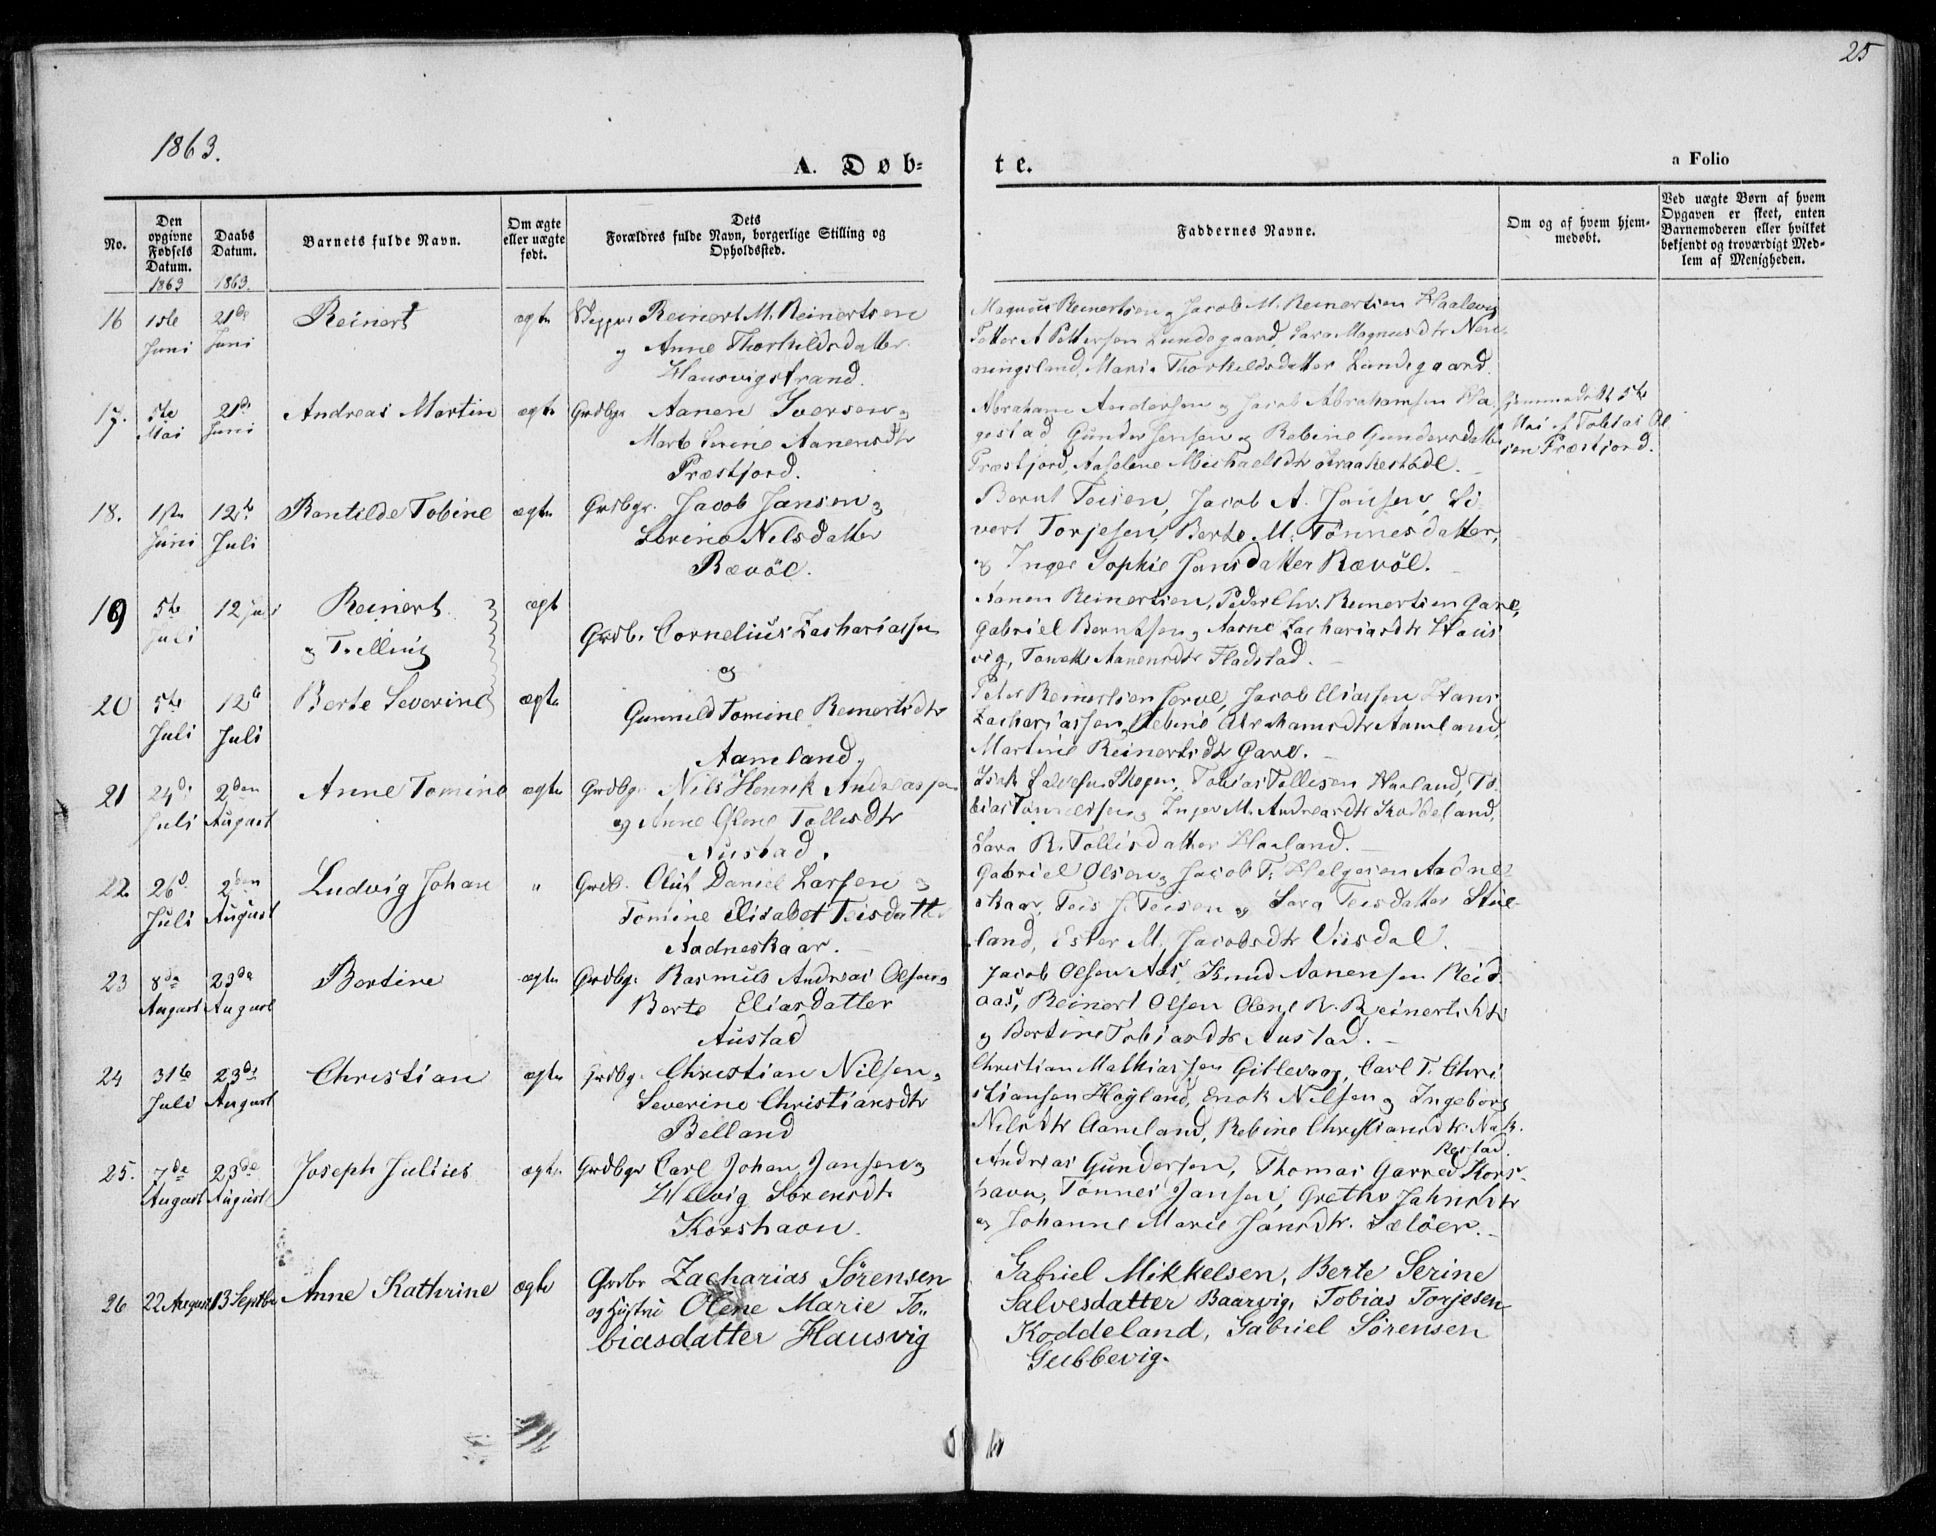 25
1863.
A. Døb-
te.
a Folio
No.
Den opgivne Fødsels Datum.
Daabs Datum.
Barnets fulde Navn.
Om ægte eller uægte født.
Dets Forældres fulde Navn, borgerlige Stilling og Opholdssted.
Faddernes Navne.
Om og af hvem hjem-medøbt.
Ved uægte Børn af hvem Opgaven er skeet, enten Barnemoderen eller hvilket bekjendt og troværdigt Med-lem af Menigheden.
1863 1863.
16 1ste Juni 21de Juni Reinert ægte Reinert M. Reinertsen
og Anne Thorkildsdatter
Hausvigstrand.
Magnus Reinertsen, Jacob M. Reinertsen Haalevig
Petter A Pettersen Lundegaard, Sara Magnusdtr Nen-
ningsland, Maria Thorkildsdatter Lundegaard.
17. 5te Mai 21de Juni Andreas Martin ægte Grdbgr Aanen Iversen og
Marte Serine Aanensdtr
Præstjord.
Abraham Andersen og Jacob Abrahamsen Ha-
gestad, Gunder Jensen og Rebine Gundersdatter
Præstjord, Aaselene Michaelsdtr
Hjemmedøbt 5te
Mai af Tobias Ol-
sen Præstjord.
18. 1ste Juni 12te Juli Rantilde Tobine ægte Grdbgr. Jacob Jansen og
Serine Nilsdatter
Rævøl.
Bernt Teisen, Jacob A. Jansen, Si-
vert Torjesen, Berte M. Tønnesdatter,
og Inger Sophie Jansdatter Rævøl.
19 5te Juli 12 Juli Reinert
og Tvilling
ægt
Grdb. Cornelius Zachariassen
og
Aanen Reinertsen, Peder Chr. Reinertsen Gare,
Gabriel Berntsen og Aasne Zachariasdtr Haus-
vig, Tonette Aanensdtr Fladstad.
20 5te Juli 12te Juli Berte Severine ægte
Gunnild Tomine Reinertsdtr
Aamland.
Peter Reinertsen Jerve, Jacob Eliassen, Hans
Zachariassen, Rebine Abrahamsdtr Aamland,
Martine Reinertsdtr Gare.
21 24de Juli 2den August Anne Tomine ægte Grdbgr Nils Henrik Andreassen
og Anne Olene Tollisdtr
Austad.
Isak Salvesen Skegen, Tobias Tollisen Haaland, To-
bias Tønnessen og Inger M. Andreasdtr Koddeland,
Sara R. Tollisdatter Haaland.
22. 26d. Juli 2den August Ludvig Johan " Grdb. Oluf Daniel Larsen og
Tomine Elisabet Teisdatter
Aadneskaar.
Gabriel Olsen og Jacob T. Helgesen Aadne-
skaar, Teis J. Teisen og Sara Teisdatter Stue-
land, Ester M. Jacobsdtr Viisdal.
23 8de August 23de August Bertine ægte Grdbgr. Rasmus Andreas Olsen og
Berte Eliasdatter
Austad
Jacob Olsen Aas, Knud Aanensen Reid-
aas, Reinert Olsen, Olene R. Reinertsdtr
og Bertine Tobiasdtr Austad.
24 31te Juli 23de August Christian ægte Grdbg. Christian Nilsen og
Severine Christiansdtr
Belland
Christian Mathiassen Gitlevaag, Carl T. Chri-
stiansen Høyland, Enok Nilsen og Ingeborg
Nilsdtr Aamland, Rebine Christiansdtr.
25. 7de August 23de August Joseph Julius ægte Grdbgr Carl Johan Jansen og
Helvig Sørensdtr
Korshavn.
Andreas Gundersen, Thomas Garred Kors-
havn, Tønnes Jansen, Grethe Jahnsdtr
og Johanne Marie Jansdtr. Sæløer.
26 22 August 13 Septbr Anne Kathrine ægte Grdbr Zacharias Sørensen
og Hustru Olene Marie To-
biasdatter Hausvig
Gabriel Mikkelsen, Berte Serine
Salvesdatter Baarvig, Tobias Torjesen
Koddeland, Gabriel Sørensen
Gubbevig.